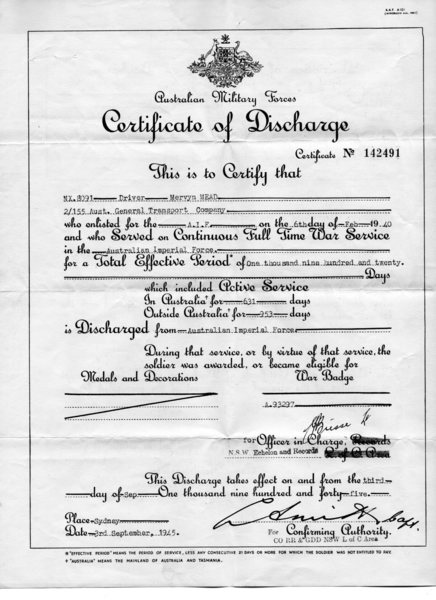 A.A.F. A121
Australian Military Forces
Certificate of Discharge
Certificate № 142491
This is to Certify that
NX.8091 Driver Mervyn HEAD
2/155 Aust. General Transport Company
who enlisted for the A.I.F. on the 6th day of Feb 19 40
and who Served on Continuous Full Time War Service
in the Australian Imperial Force
for a Total Effective Period* of One thousand nine hundred and twenty.
Days
which included Active Service
In Australia† for 631 days
Outside Australia† for 953 days
is Discharged from Australian Imperial Force
During that service, or by virtue of that service, the
soldier was awarded, or became eligible for
Medals and Decorations War Badge
A.93297
for Officer in Charge, Records
N.S.W Echelon and Records L of C Area
This Discharge takes effect on and from the third
day of Sep. One thousand nine hundred and forty five.
Place Sydney
Date 3rd September, 1945. For Confirming Authority.
CO RR & GDD NSW L of C Area
* "EFFECTIVE PERIOD" MEANS THE PERIOD OF SERVICE, LESS ANY CONSECUTIVE 21 DAYS OR MORE FOR WHICH THE SOLDIER WAS NOT ENTITLED TO PAY.
† "AUSTRALIA" MEANS THE MAINLAND OF AUSTRALIA AND TASMANIA.